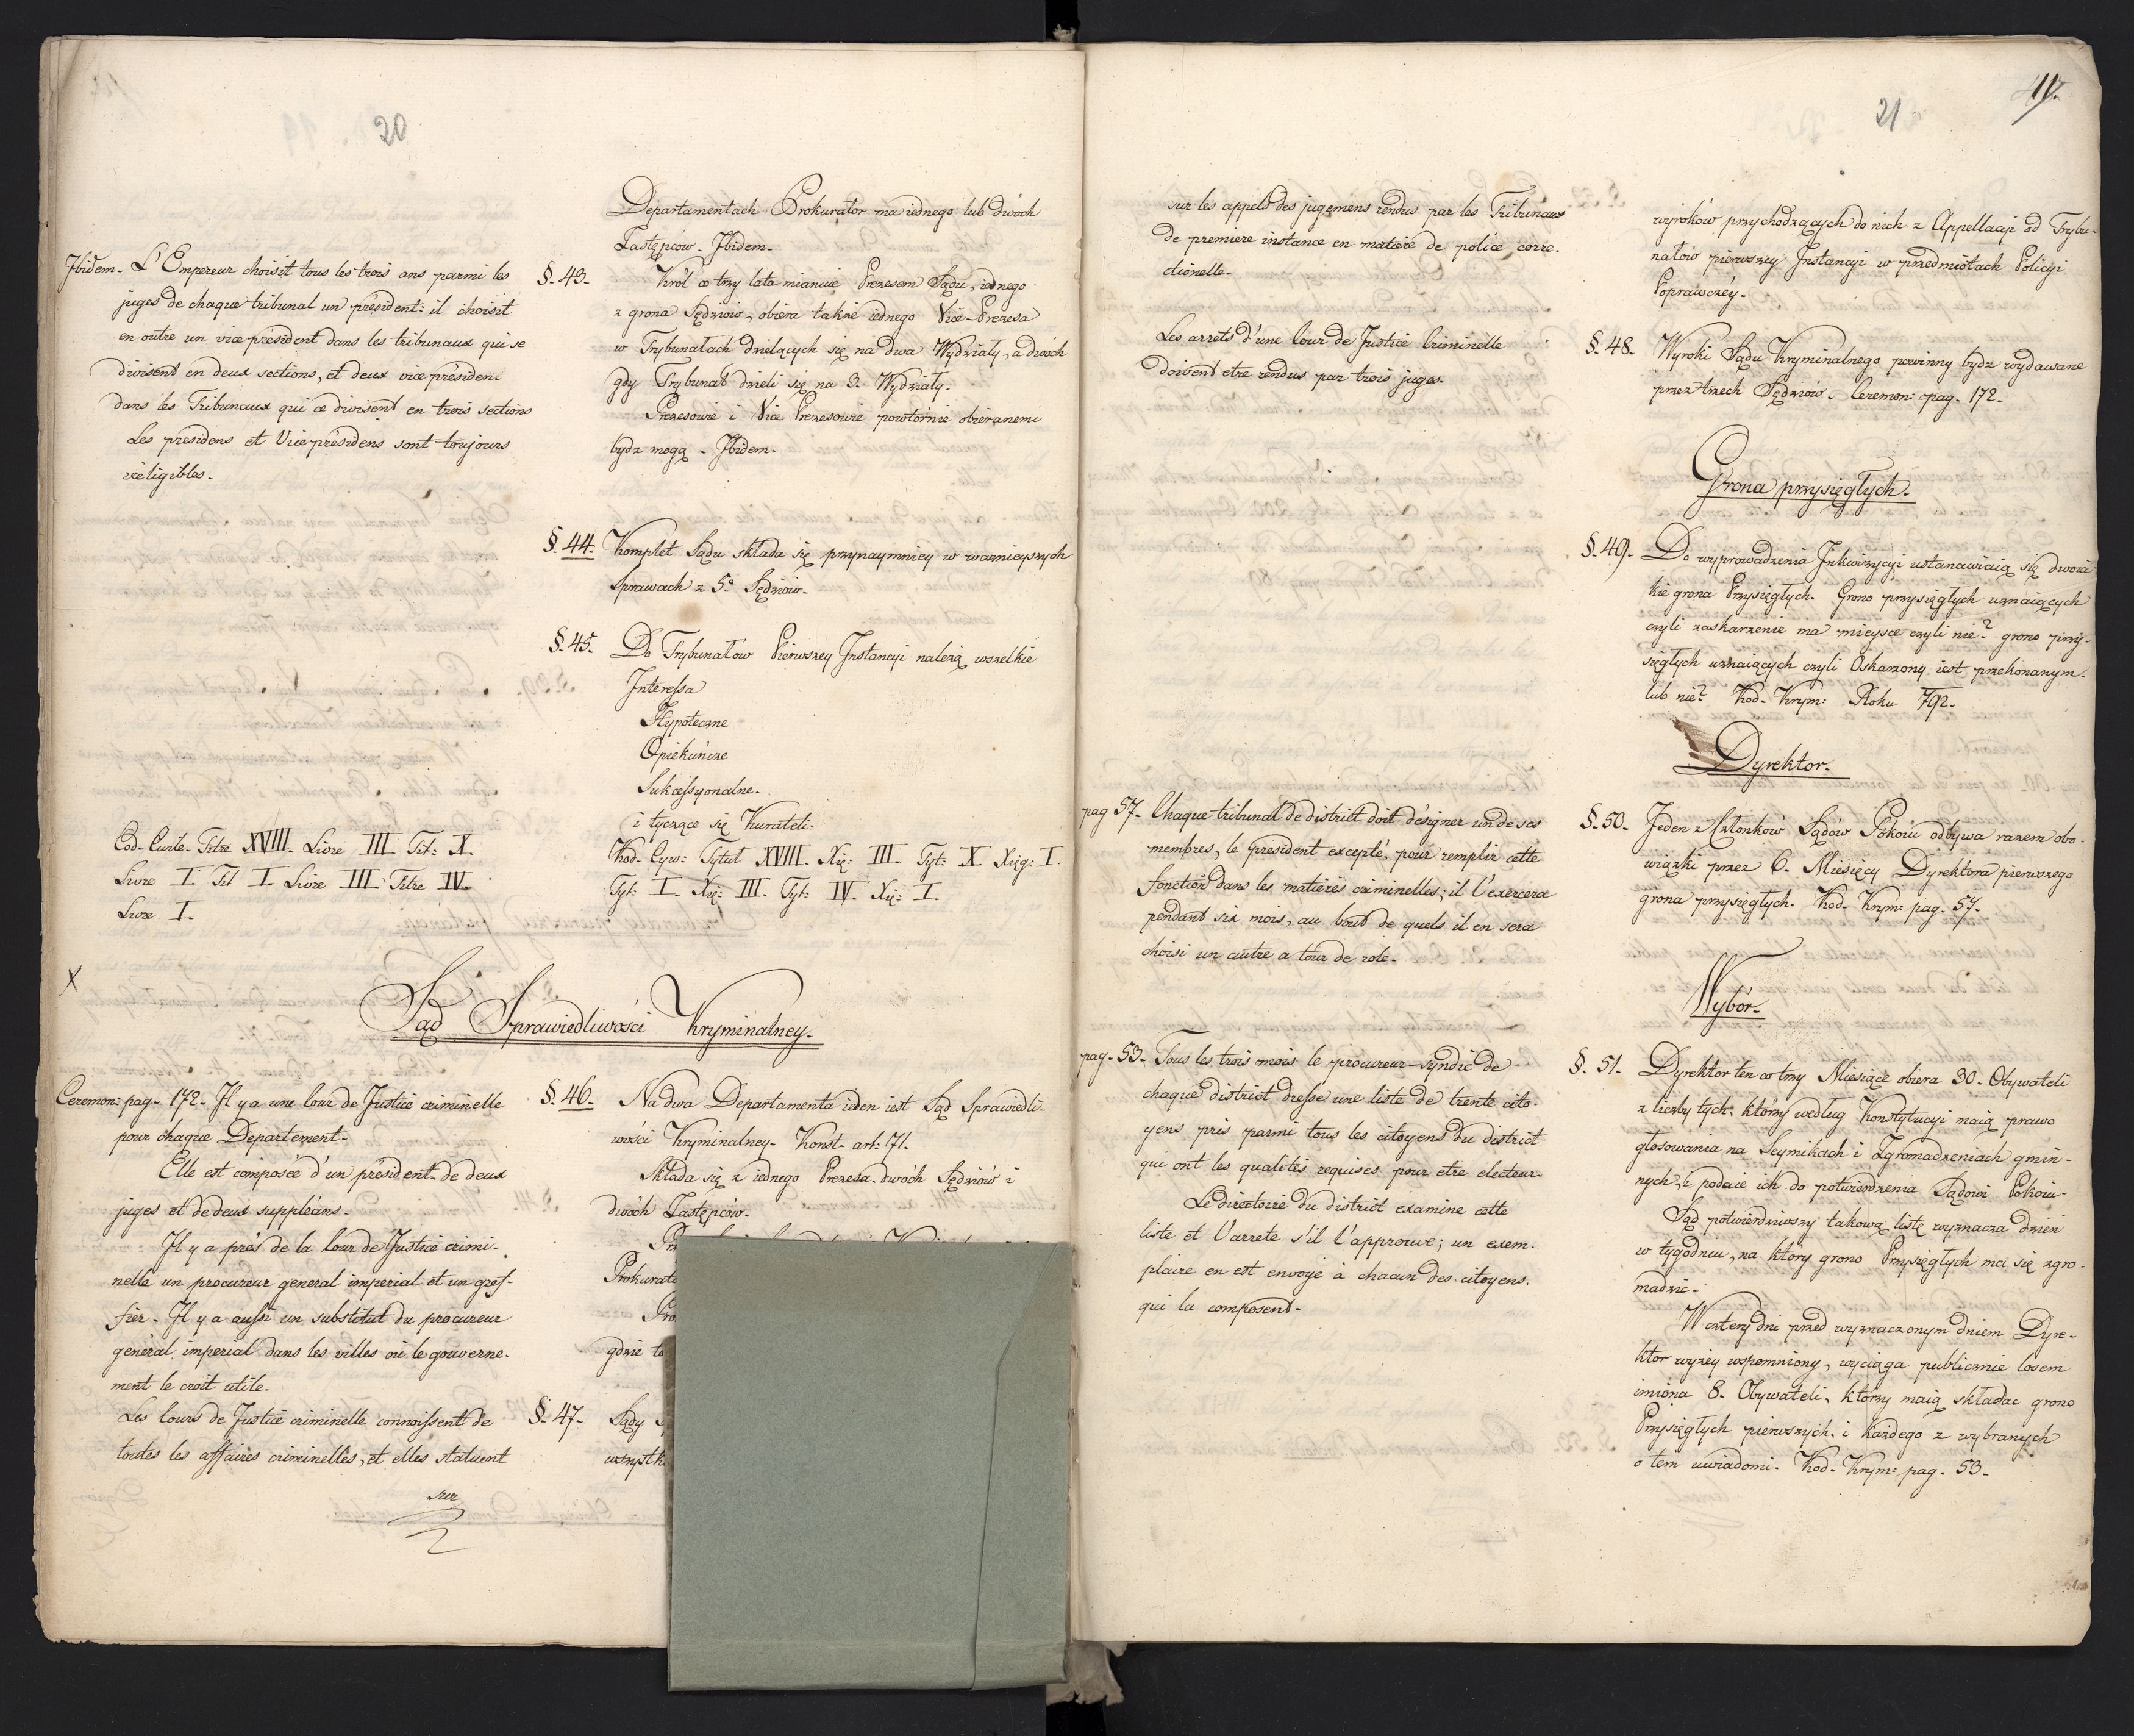 20
Ibidem. L'Empereur choisit tous les trois ans parmi les
juges de chaque tribunal un président: il choisit
en outre un vice président dans les tribunaux qui se
divisent en deux sections, et deux vice présiden.
dans les Tribunaux qui ce divisent en trois sections
Les presidens et Vice présidens sont toujours
rééligibles.
Cod. Civile. Titre XVIII. Livre III. Tit: X.
Livre I. Tit I. Livre III. Titre IV.
Livre I.
Departamentach Prokurator ma iednego lub dwóch
Zastępców. Ibidem.
§. 43. Król co trzy lata mianuie Prezesem Sądu, iednego
z grona Sędziów, obiera także iednego Vice-Prezesa
w Trybunałach dzielących się na dwa Wydziały, a dwóch
gdy Trybunał dzieli się na 3. Wydziały.
Prezesowie i Vice Prezesowie powtórnie obieranemi
bydz mogą. Ibidem.
§. 44. Komplet Sądu składa się przynaymniey w ważnieyszych
sprawach z 5. Sędziów.
§. 45. Do Trybunałów Pierwszey Instancyi należą wszelkie
Interessa
Hypoteczne
Opiekuńcze
Sukcessyonalne.
i tyczące się Kurateli.
Kod. Cyw: Tytuł XVIII. Xię: III. Tyt: X Xięg: I.
Tyt: I. Xię: III. Tyt: IV. Xię: I.
X
Sąd Sprawiedliwości Kryminalney.
Ceremon: pag. 172. Il y a une Cour de Justice criminelle
pour chaque Departement.
Elle est composée d'un président de deux
juges et de deux suppléans.
Il y a près de la Cour de Justice crimi.
nelle un procureur general imperial et un gref-
fier. Il y a aussi un substitut du procureur
général imperial dans les villes où le gouverne.
ment le croit utile.
Les Cours de Justice criminelle connoissent de
toutes les affaires criminelles, et elles statuent
sur
§. 46. Na dwa Departamenta ieden iest Sąd Sprawiedli-
wości Kryminalney. Konst. art: 71.
Składa się z iednego Prezesa dwóch Sędziów i
dwóch Zastępców.
Prokurato
Pro
gdzie te
§. 47. Sądy
wszystk
21
sur les appels des jugemens rendus par les Tribunaux
de premiere instance en matiere de police corre.
ctionelle.
Les arrets d'une Cour de Justice Criminelle
doivent etre rendus par trois juges.
pag 57. Chaque tribunal de district doit désigner un de ses
membres, le president excepté, pour remplir cette
fonction dans les matieres criminelles; il l'exercera
pendant six mois, au bout de quels il en sera
choisi un autre a tour de role.
pag. 53. Tous les trois mois le procureur-syndic de
chaque district dresse une liste de trente cito-
yens pris parmi tous les citoyens du district
qui ont les qualités requises pour etre electeur.
Le directoire du district examine cette
liste et l'arrete s'il l'approuve; un exem.
plaire en est envoyé à chacun des citoyens.
qui la composent.
wyroków przychodzących do nich z Appellacyi od Trybu-
nałów pierwszey Instancyi w przedmiotach Policyi
Poprawczéy.
§. 48. Wyroki Sądu Kryminalnego powinny bydz wydawane
przez trzech Sędziów. Ceremon: pag. 172.
Grona przysięgłych.
§. 49. Do wyprowadzenia Inkwizycyi ustanawiaią się dwoia
kie grona Przysięgłych. Grono przysięgłych uznaiących
czyli zaskarżenie ma mieysce czyli nie? grono przy-
sięgłych uznaiących czyli Oskarżony iest przekonanym.
lub nie? Kod. Krym: Roku 792.
Dyrektor.
§. 50. Jeden z Członków Sądów Pokoiu odbywa razem obo.
wiązki przez 6. Miesięcy Dyrektora pierwszego
grona przysięgłych. Kod. Krym: pag. 57.
Wybór.
§. 51. Dyrektor ten co trzy Miesiące obiera 30. Obywateli
z liczby tych, którzy według Konstytucyi maią prawo
głosowania na Seymikach i Zgromadzeniach gmin-
nych, i podaie ich do potwierdzenia Sądowi Pokoiu.
Sąd potwierdziwszy takową listę wyznacza dzień
w tygodniu, na który grono Przysięgłych ma się zgro-
madzic.
W cztery dni przed wyznaczonym dniem Dyre-
ktor wyżey wspomniony, wyciąga publicznie losem
imiona 8. Obywateli, którzy maią składac grono
Przysięgłych pierwszych, i każdego z wybranych
o tem uwiadomi. Kod. Krym: pag. 53.